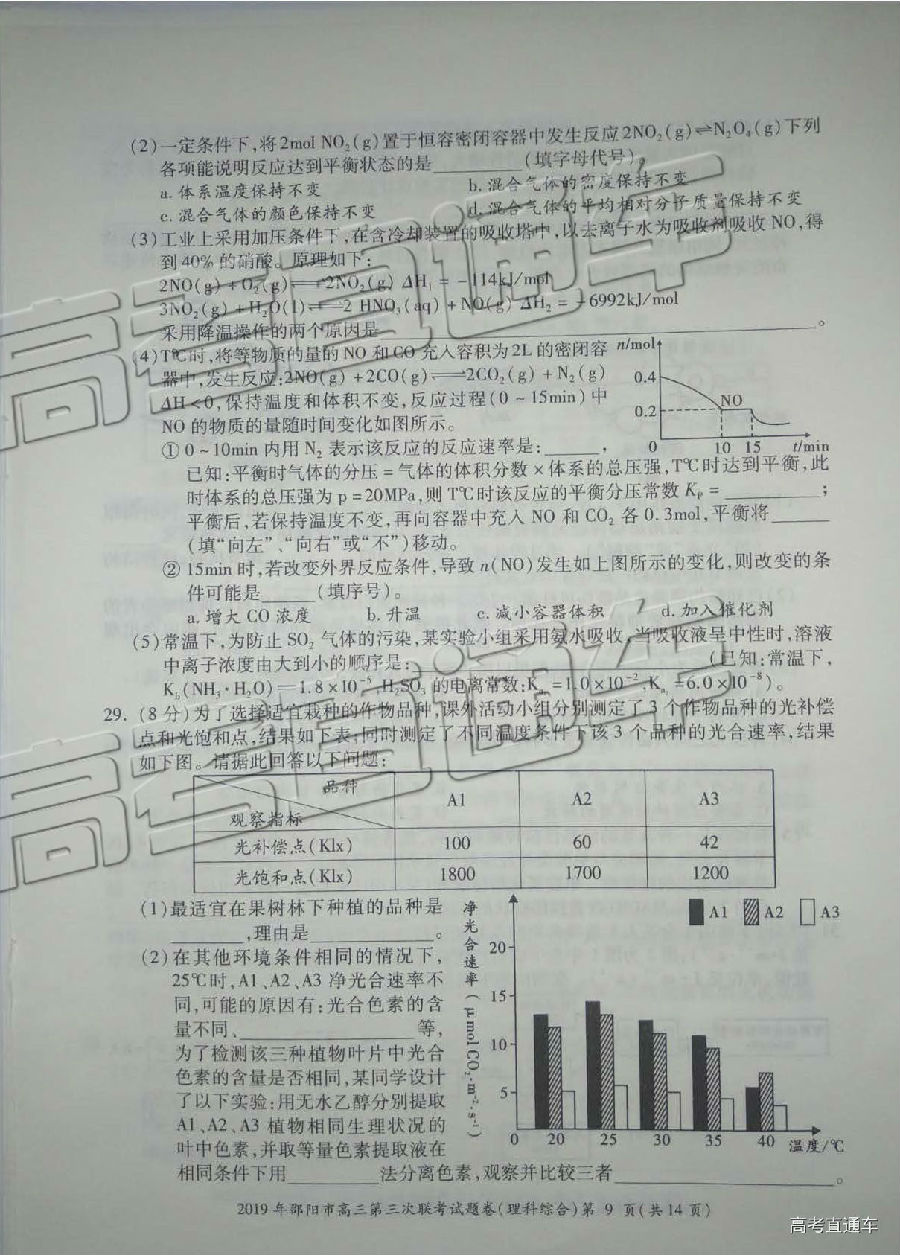 (2)一定条件下,将2mol NO₂(g)置于恒容密闭容器中发生反应2NO₂(g)⇌N₂O₄(g)下列
各项能说明反应达到平衡状态的是______(填字母代号)。
a.体系温度保持不变 b.混合气体的密度保持不变
c.混合气体的颜色保持不变 d.混合气体的平均相对分子质量保持不变
(3)工业上采用加压条件下,在含冷却装置的吸收塔中,以去离子水为吸收剂吸收NO,得
到40%的硝酸。原理如下:
2NO(g)+O₂(g)⇌2NO₂(g) ΔH₁=-114kJ/mol
3NO₂(g)+H₂O(l)⇌2 HNO₃(aq)+NO(g) ΔH₂=-6992kJ/mol
采用降温操作的两个原因是______。
(4)T℃时,将等物质的量的NO和CO充入容积为2L的密闭容
器中,发生反应:2NO(g)+2CO(g)⇌2CO₂(g)+N₂(g)
ΔH<0,保持温度和体积不变,反应过程(0~15min)中
NO的物质的量随时间变化如图所示。
n/mol
0.4
NO
0.2
0 10 15 t/min
①0~10min内用N₂表示该反应的反应速率是:______,
已知:平衡时气体的分压=气体的体积分数×体系的总压强,T℃时达到平衡,此
时体系的总压强为p=20MPa,则T℃时该反应的平衡分压常数Kₚ=______;
平衡后,若保持温度不变,再向容器中充入NO和CO₂各0.3mol,平衡将______
(填“向左”、“向右”或“不”)移动。
②15min时,若改变外界反应条件,导致n(NO)发生如上图所示的变化,则改变的条
件可能是______(填序号)。
a.增大CO浓度 b.升温 c.减小容器体积 d.加入催化剂
(5)常温下,为防止SO₂气体的污染,某实验小组采用氨水吸收,当吸收液呈中性时,溶液
中离子浓度由大到小的顺序是:______(已知:常温下,
K_b(NH₃·H₂O)=1.8×10⁻⁵,H₂SO₃的电离常数:K_a₁=1.0×10⁻²,K_a₂=6.0×10⁻⁸)。
29.(8分)为了选择适宜栽种的作物品种,课外活动小组分别测定了3个作物品种的光补偿
点和光饱和点,结果如下表;同时测定了不同温度条件下该3个品种的光合速率,结果
如下图。请据此回答以下问题:
品种 A1 A2 A3
观察指标
光补偿点(Klx) 100 60 42
光饱和点(Klx) 1800 1700 1200
(1)最适宜在果树林下种植的品种是
______,理由是______。
(2)在其他环境条件相同的情况下,
25℃时,A1、A2、A3净光合速率不
同,可能的原因有:光合色素的含
量不同、______等,
为了检测该三种植物叶片中光合
色素的含量是否相同,某同学设计
了以下实验:用无水乙醇分别提取
A1、A2、A3植物相同生理状况的
叶中色素,并取等量色素提取液在
相同条件下用______法分离色素,观察并比较三者______。
净光合速率(μmolCO₂·m⁻²·s⁻¹)
A1 A2 A3
20
15
10
5
0 20 25 30 35 40 温度/℃
2019年邵阳市高三第三次联考试题卷(理科综合)第 9 页(共14页)
高考直通车
高考直通车
高考直通车